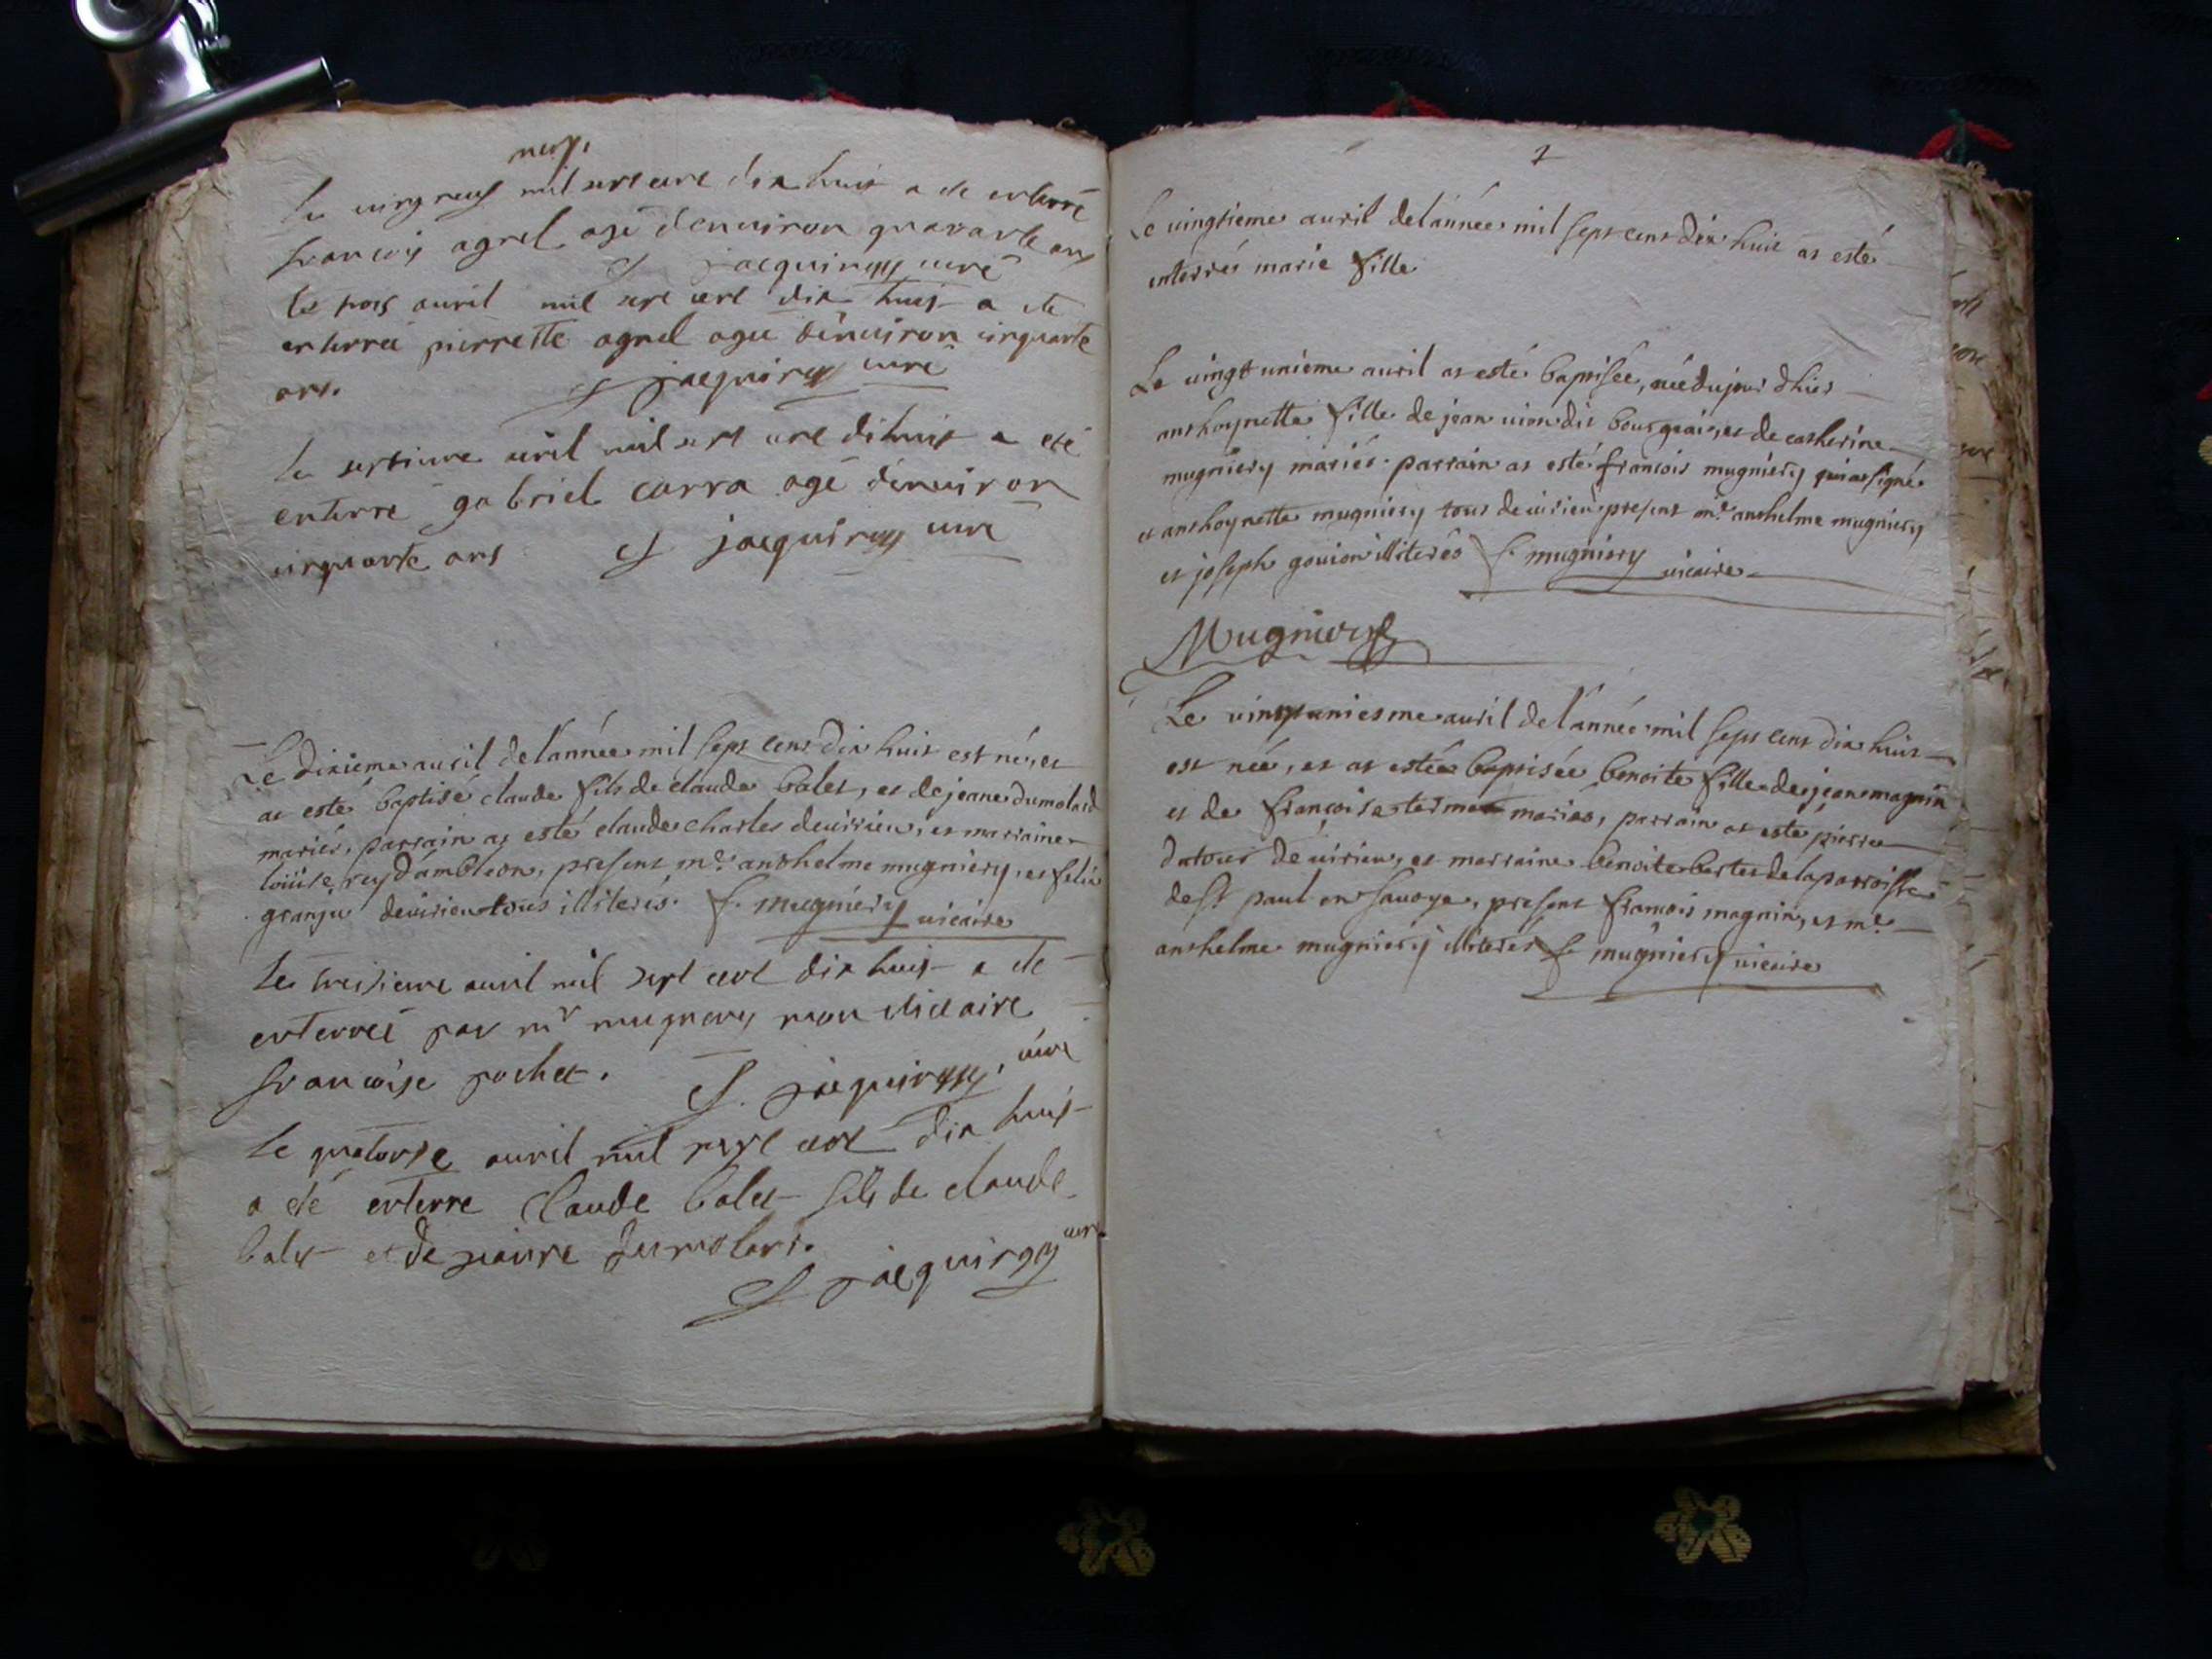 mars
le vingt neuf mil sept cent dix huit a ete enterré
francois agnel agé denuiron quarante ans
jacquinery curé
le trois auril mil sept cent dix huit a ete
enterree pierrette agnel agee denuiron cinquante
ans. jacquinery curé
le septieme auril mil sept cent dix huit a eté
enterre gabriel carra agé denuiron
cinquante ans jacquinery curé
Le dixieme auril de l'année mil sept cens dix huit est né, et
as esté baptisé claude fils de claude balet, et de jeane dumolard
mariés, parrain as esté claude charles deuirieu, et marraine
loüise rey d'ambleon, present me anthelme mugniery, et felix
granju deuirieu tous illiterés. f. mugniery uicaire
le treisieme auril mil sept cent dix huit a eté
enterreé par mr mugnery mon vicaire
francoise pochet. jacquinery curé
le quatorse auril mil sept cent dix huit
a eté enterre Claude balet fils de claude
balet et de jeanne dumolard.
jacquinery curé
Le uingtieme auril de l'année mil sept cens dix huit as esté
enterrés marie fille
Le uingt unieme auril as esté baptisée, née du jour d'hier
anthoynette fille de jean uion dit bourgeois, et de catherine
mugniery mariés. parrain as esté francois mugniery qui as signé
et anthoynette mugniery tous de uirieu present me anthelme mugniery
et joseph gouion illiterés f. mugniery uicaire
Mugniery
Le vingt uniesme auril de l'année mil sept cens dix huit
est née, et as estée baptisée benoite fille de jean magnin
et de françoise mariés, parrain as esté pierre
dutour de uirieu, et marraine benoite bertet de la parroisse
de st paul en sauoye, present francois magnin, et me
anthelme mugniery illiterés f. mugniery uicaire